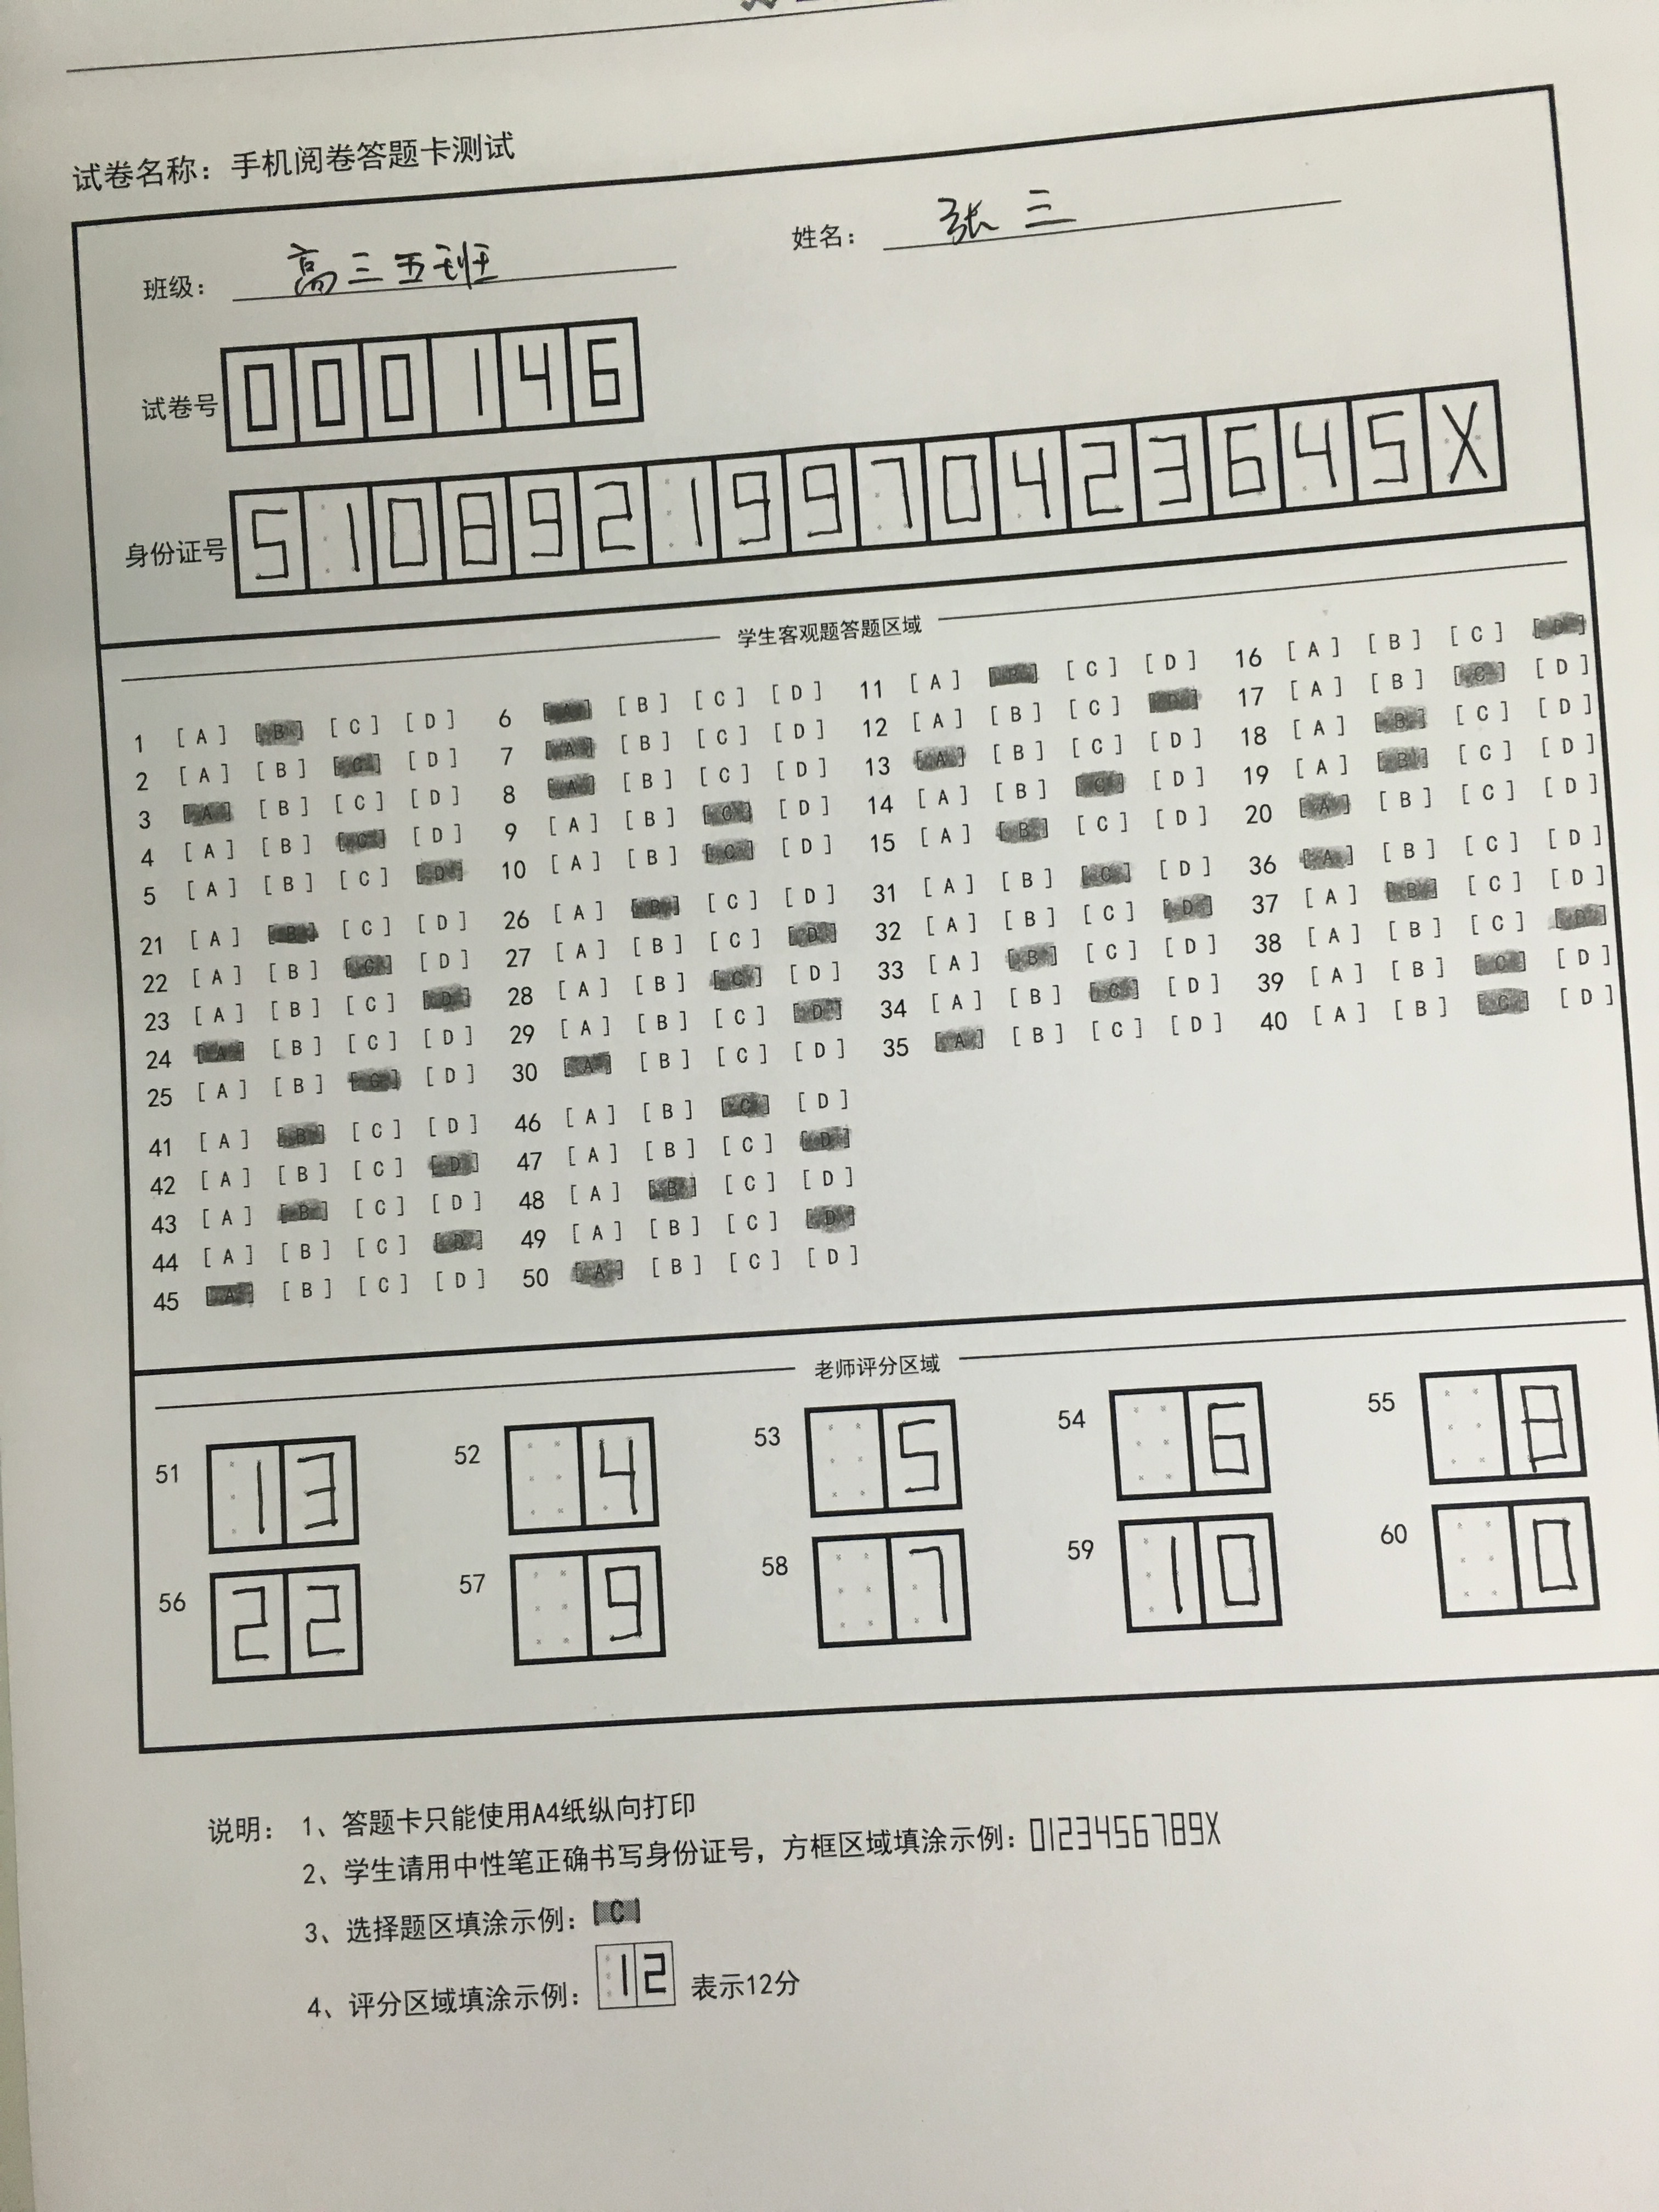 试卷名称：手机阅卷答题卡测试
班级： 高三五班 姓名： 张三
试卷号 000146
身份证号 51089219970423645X
学生客观题答题区域
1 [A] [B] [C] [D] 6 [A] [B] [C] [D] 11 [A] [B] [C] [D] 16 [A] [B] [C] [D]
2 [A] [B] [C] [D] 7 [A] [B] [C] [D] 12 [A] [B] [C] [D] 17 [A] [B] [C] [D]
3 [A] [B] [C] [D] 8 [A] [B] [C] [D] 13 [A] [B] [C] [D] 18 [A] [B] [C] [D]
4 [A] [B] [C] [D] 9 [A] [B] [C] [D] 14 [A] [B] [C] [D] 19 [A] [B] [C] [D]
5 [A] [B] [C] [D] 10 [A] [B] [C] [D] 15 [A] [B] [C] [D] 20 [A] [B] [C] [D]
21 [A] [B] [C] [D] 26 [A] [B] [C] [D] 31 [A] [B] [C] [D] 36 [A] [B] [C] [D]
22 [A] [B] [C] [D] 27 [A] [B] [C] [D] 32 [A] [B] [C] [D] 37 [A] [B] [C] [D]
23 [A] [B] [C] [D] 28 [A] [B] [C] [D] 33 [A] [B] [C] [D] 38 [A] [B] [C] [D]
24 [A] [B] [C] [D] 29 [A] [B] [C] [D] 34 [A] [B] [C] [D] 39 [A] [B] [C] [D]
25 [A] [B] [C] [D] 30 [A] [B] [C] [D] 35 [A] [B] [C] [D] 40 [A] [B] [C] [D]
41 [A] [B] [C] [D] 46 [A] [B] [C] [D]
42 [A] [B] [C] [D] 47 [A] [B] [C] [D]
43 [A] [B] [C] [D] 48 [A] [B] [C] [D]
44 [A] [B] [C] [D] 49 [A] [B] [C] [D]
45 [A] [B] [C] [D] 50 [A] [B] [C] [D]
老师评分区域
51 13 52 4 53 5 54 6 55 8
56 22 57 9 58 7 59 10 60 0
说明： 1、答题卡只能使用A4纸纵向打印
2、学生请用中性笔正确书写身份证号，方框区域填涂示例：0123456789X
3、选择题区填涂示例：[C]
4、评分区域填涂示例：12 表示12分